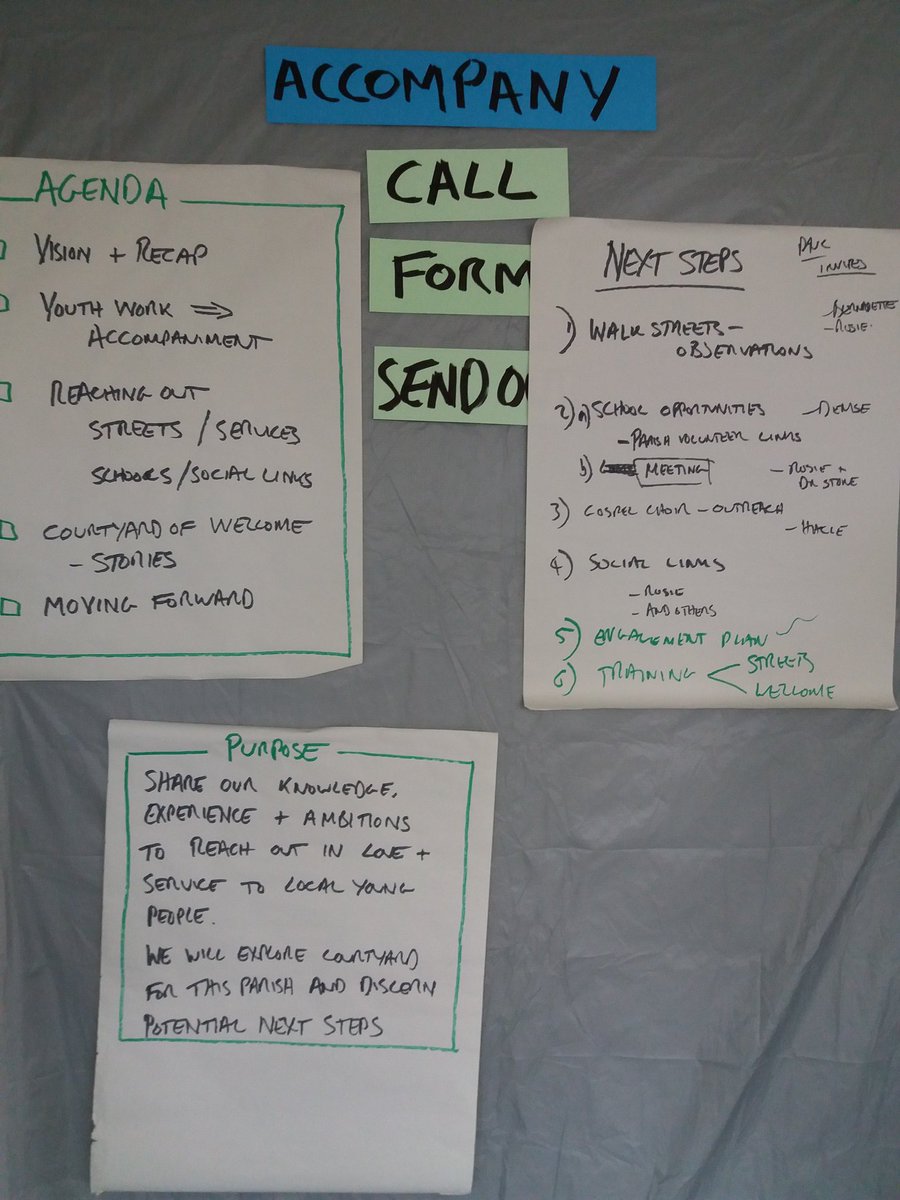 ACCOMPANY
CALL
FORM
SEND O
AGENDA
VISION + RECAP
YOUTH WORK ⇒
ACCOMPANIMENT
REACHING OUT
STREETS / SERVICES
SCHOOLS / SOCIAL LINKS
COURTYARD OF WELCOME
- STORIES
MOVING FORWARD
NEXT STEPS
INVITES
1) WALK STREETS -
OBSERVATIONS
- BERNADETTE
- ROSIE
2) a) SCHOOL OPPORTUNITIES - DENISE
- PARISH VOLUNTEER LINKS
b) MEETING - ROSIE +
DR STONE
3) GOSPEL CHOIR - OUTREACH
4) SOCIAL LINKS
- ROSIE
- AND OTHERS
5) ENGAGEMENT PLAN
6) TRAINING < STREETS
WELCOME
PURPOSE
SHARE OUR KNOWLEDGE,
EXPERIENCE + AMBITIONS
TO REACH OUT IN LOVE +
SERVICE TO LOCAL YOUNG
PEOPLE.
WE WILL EXPLORE COURTYARD
FOR THIS PARISH AND DISCERN
POTENTIAL NEXT STEPS